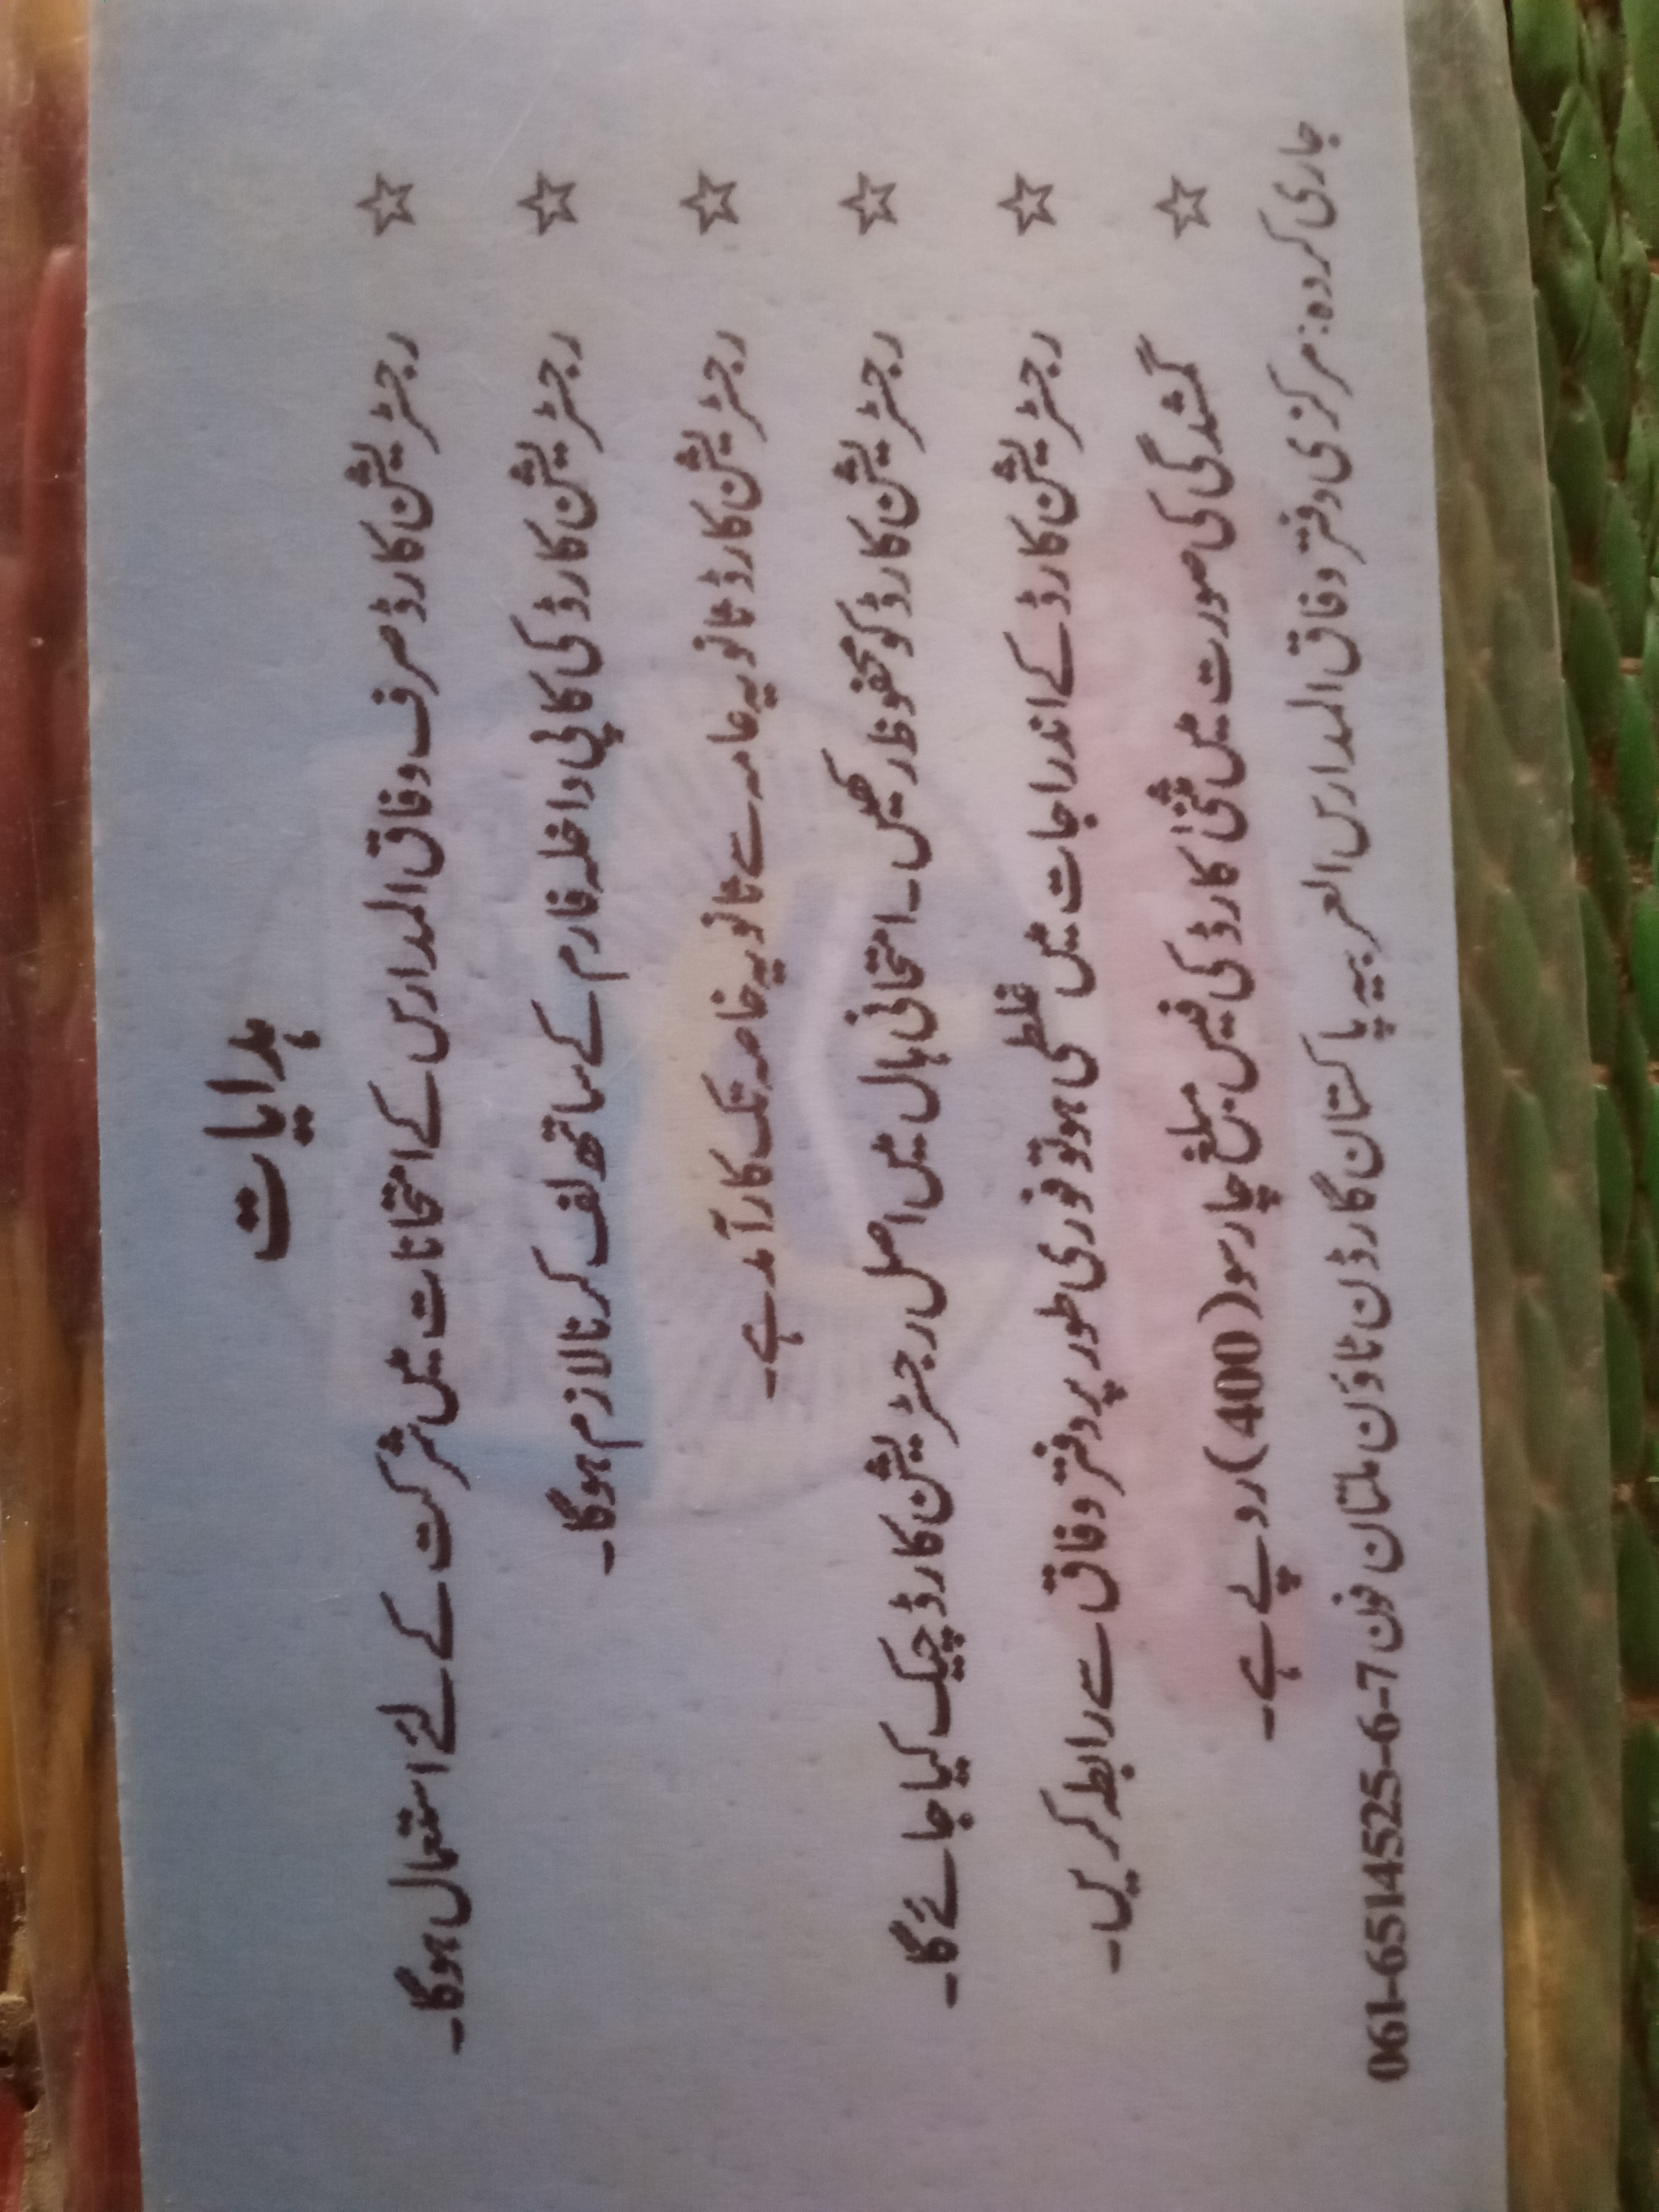 ہدایات
☆ رجسٹریشن کارڈ صرف وفاق المدارس کے امتحانات میں شرکت کے لئے استعمال ہوگا۔
☆ رجسٹریشن کارڈ کی کاپی داخلہ فارم کے ساتھ لف کرنا لازم ہوگا۔
☆ رجسٹریشن کارڈ ثانویہ عامہ سے ثانویہ خاصہ تک کارآمد ہے۔
☆ رجسٹریشن کارڈ کو محفوظ رکھیں۔ امتحانی ہال میں اصل رجسٹریشن کارڈ چیک کیا جائے گا۔
☆ رجسٹریشن کارڈ کے اندراجات میں غلطی ہو تو فوری طور پر دفتر وفاق سے رابطہ کریں۔
☆ گمشدگی کی صورت میں مثنیٰ کارڈ کی فیس مبلغ چار سو (400) روپے ہے۔
جاری کردہ: مرکزی دفتر وفاق المدارس العربیہ پاکستان گارڈن ٹاؤن ملتان فون 7-6-6514525-061